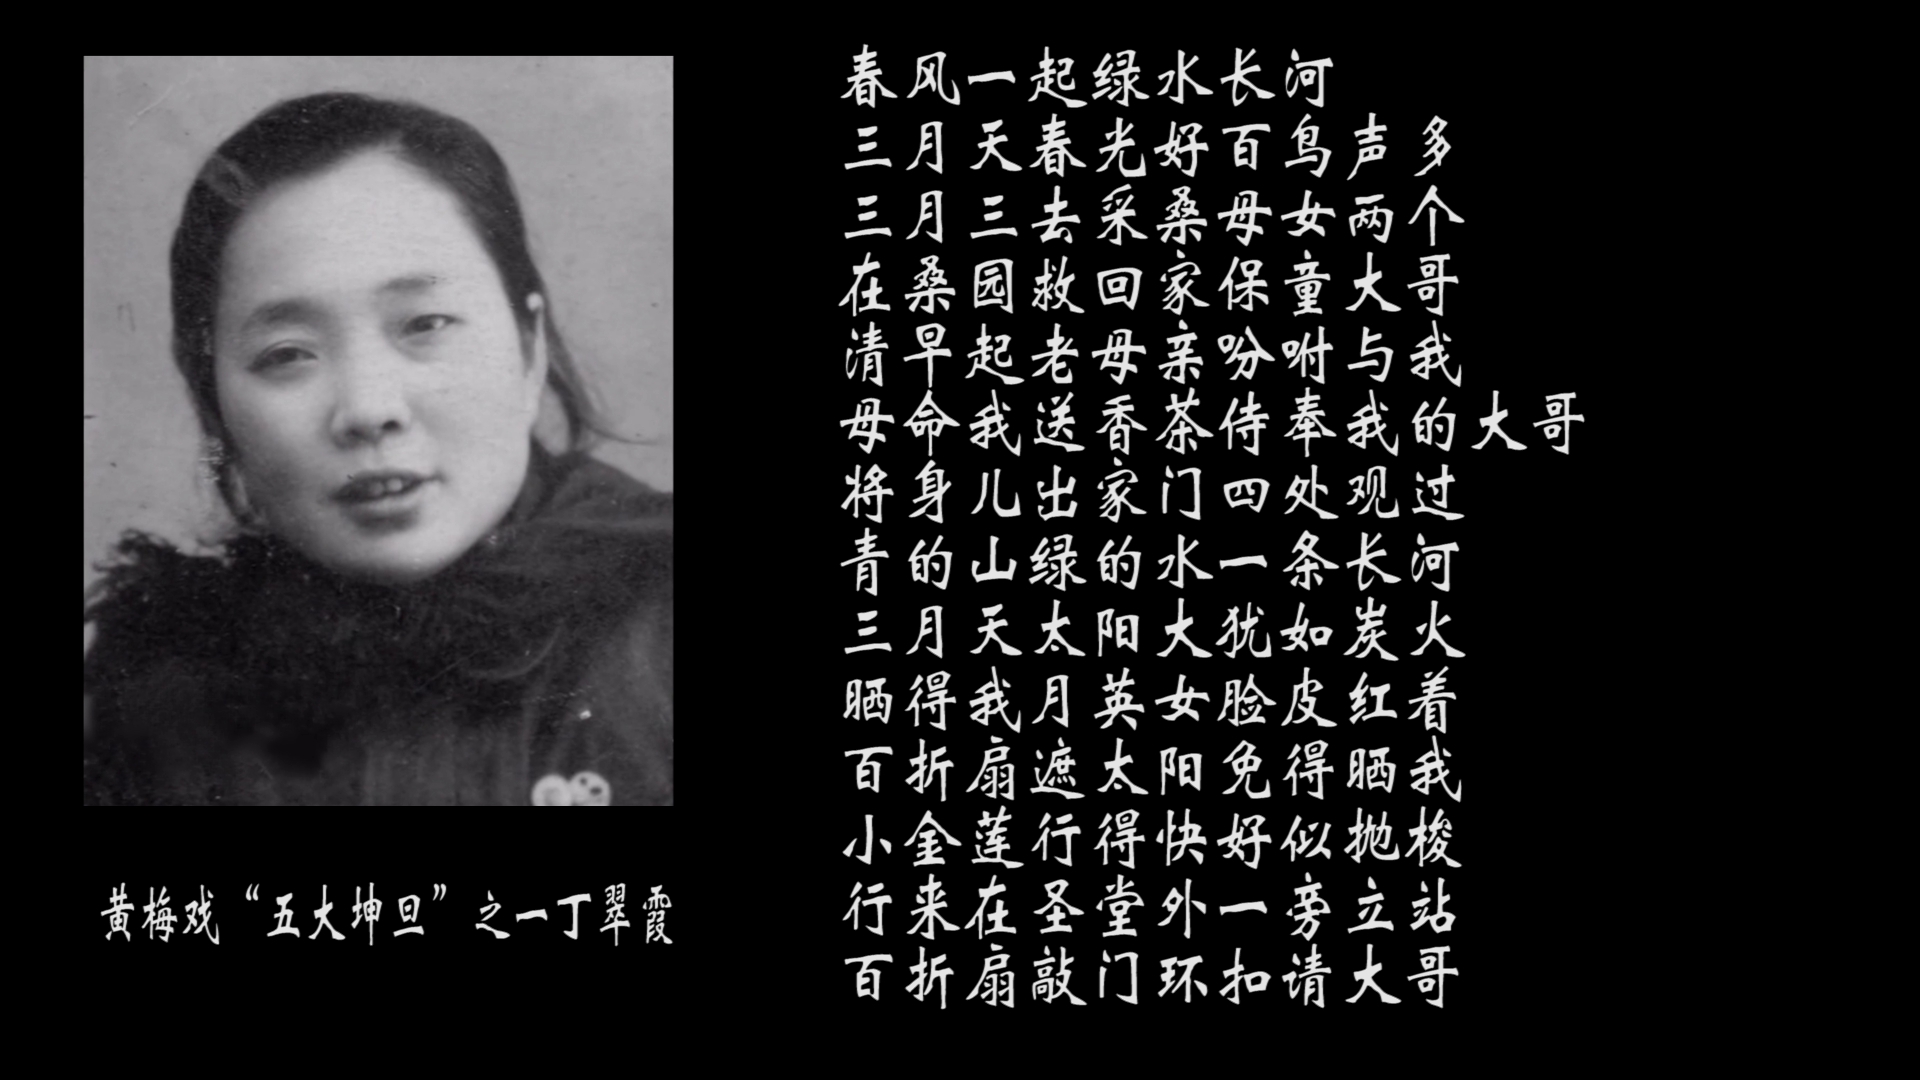 春风一起绿水长河
三月天春光好百鸟声多
三月三去采桑母女两个
在桑园救回家保童大哥
清早起老母亲吩咐与我
母命我送香茶侍奉我的大哥
将身儿出家门四处观过
青的山绿的水一条长河
三月天太阳大犹如炭火
晒得我月英女脸皮红着
百折扇遮太阳免得晒我
小金莲行得快好似抛梭
行来在圣堂外一旁立站
百折扇敲门环扣请大哥
黄梅戏“五大坤旦”之一丁翠霞